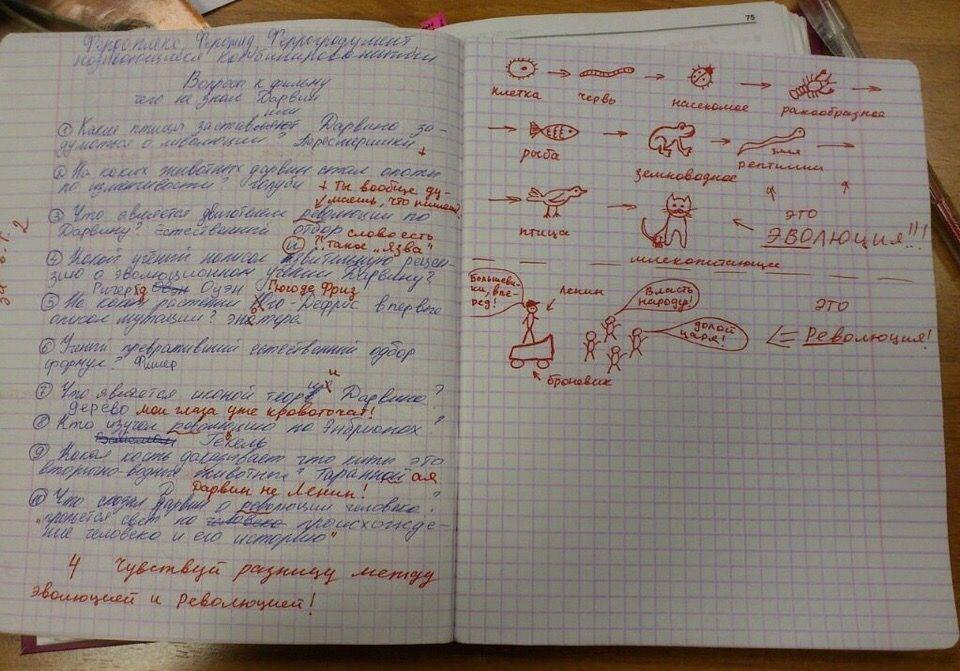 Вопросы к фильму
чего не знал Дарвин
① Какие птицы заставили Дарвина за-
думатся о революции? пересмешники +
② На каких животных дарвин ставил опыты
по изменчивости? голуби + ты вообще ду-
маешь, что пишешь?
③ Что является двигателем революции по
Дарвину? естественный отбор слово есть
и? такое "Язва"
④ Какой учёный написал язвительную рецен-
зию о эволюционном учении Дарвину?
Ричерд Оуэн Гюгоде Фриз
⑤ На каком растении Гюго-Дефриз впервые
описал мутации? энотера
⑥ Учёный превративший естественный отбор
формулу? Фишер
⑦ Что является иконой теории Дарвина?
дерево мои глаза уже кровоточат!
⑧ Кто изучал революцию по Энбрионах?
Геккель
⑨ Какая кость доказывает что киты это
вторично-водные животные? Таранной ая
Дарвин не Ленин!
⑩ Что сказал Дарвин о революции человека?
"прольётся свет на человека происхожде-
ние человека и его историю"
4 Чувствуй разницу между
эволюцией и революцией!
2
75
клетка червь насекомое ракообразное
рыба земноводное змея рептилии
птица
это
ЭВОЛЮЦИЯ!!!
млекопитающие
Большеви-
ки, впе-
ред!
Ленин
Власть
народу!
долой
царя!
броневик
это
Революция!